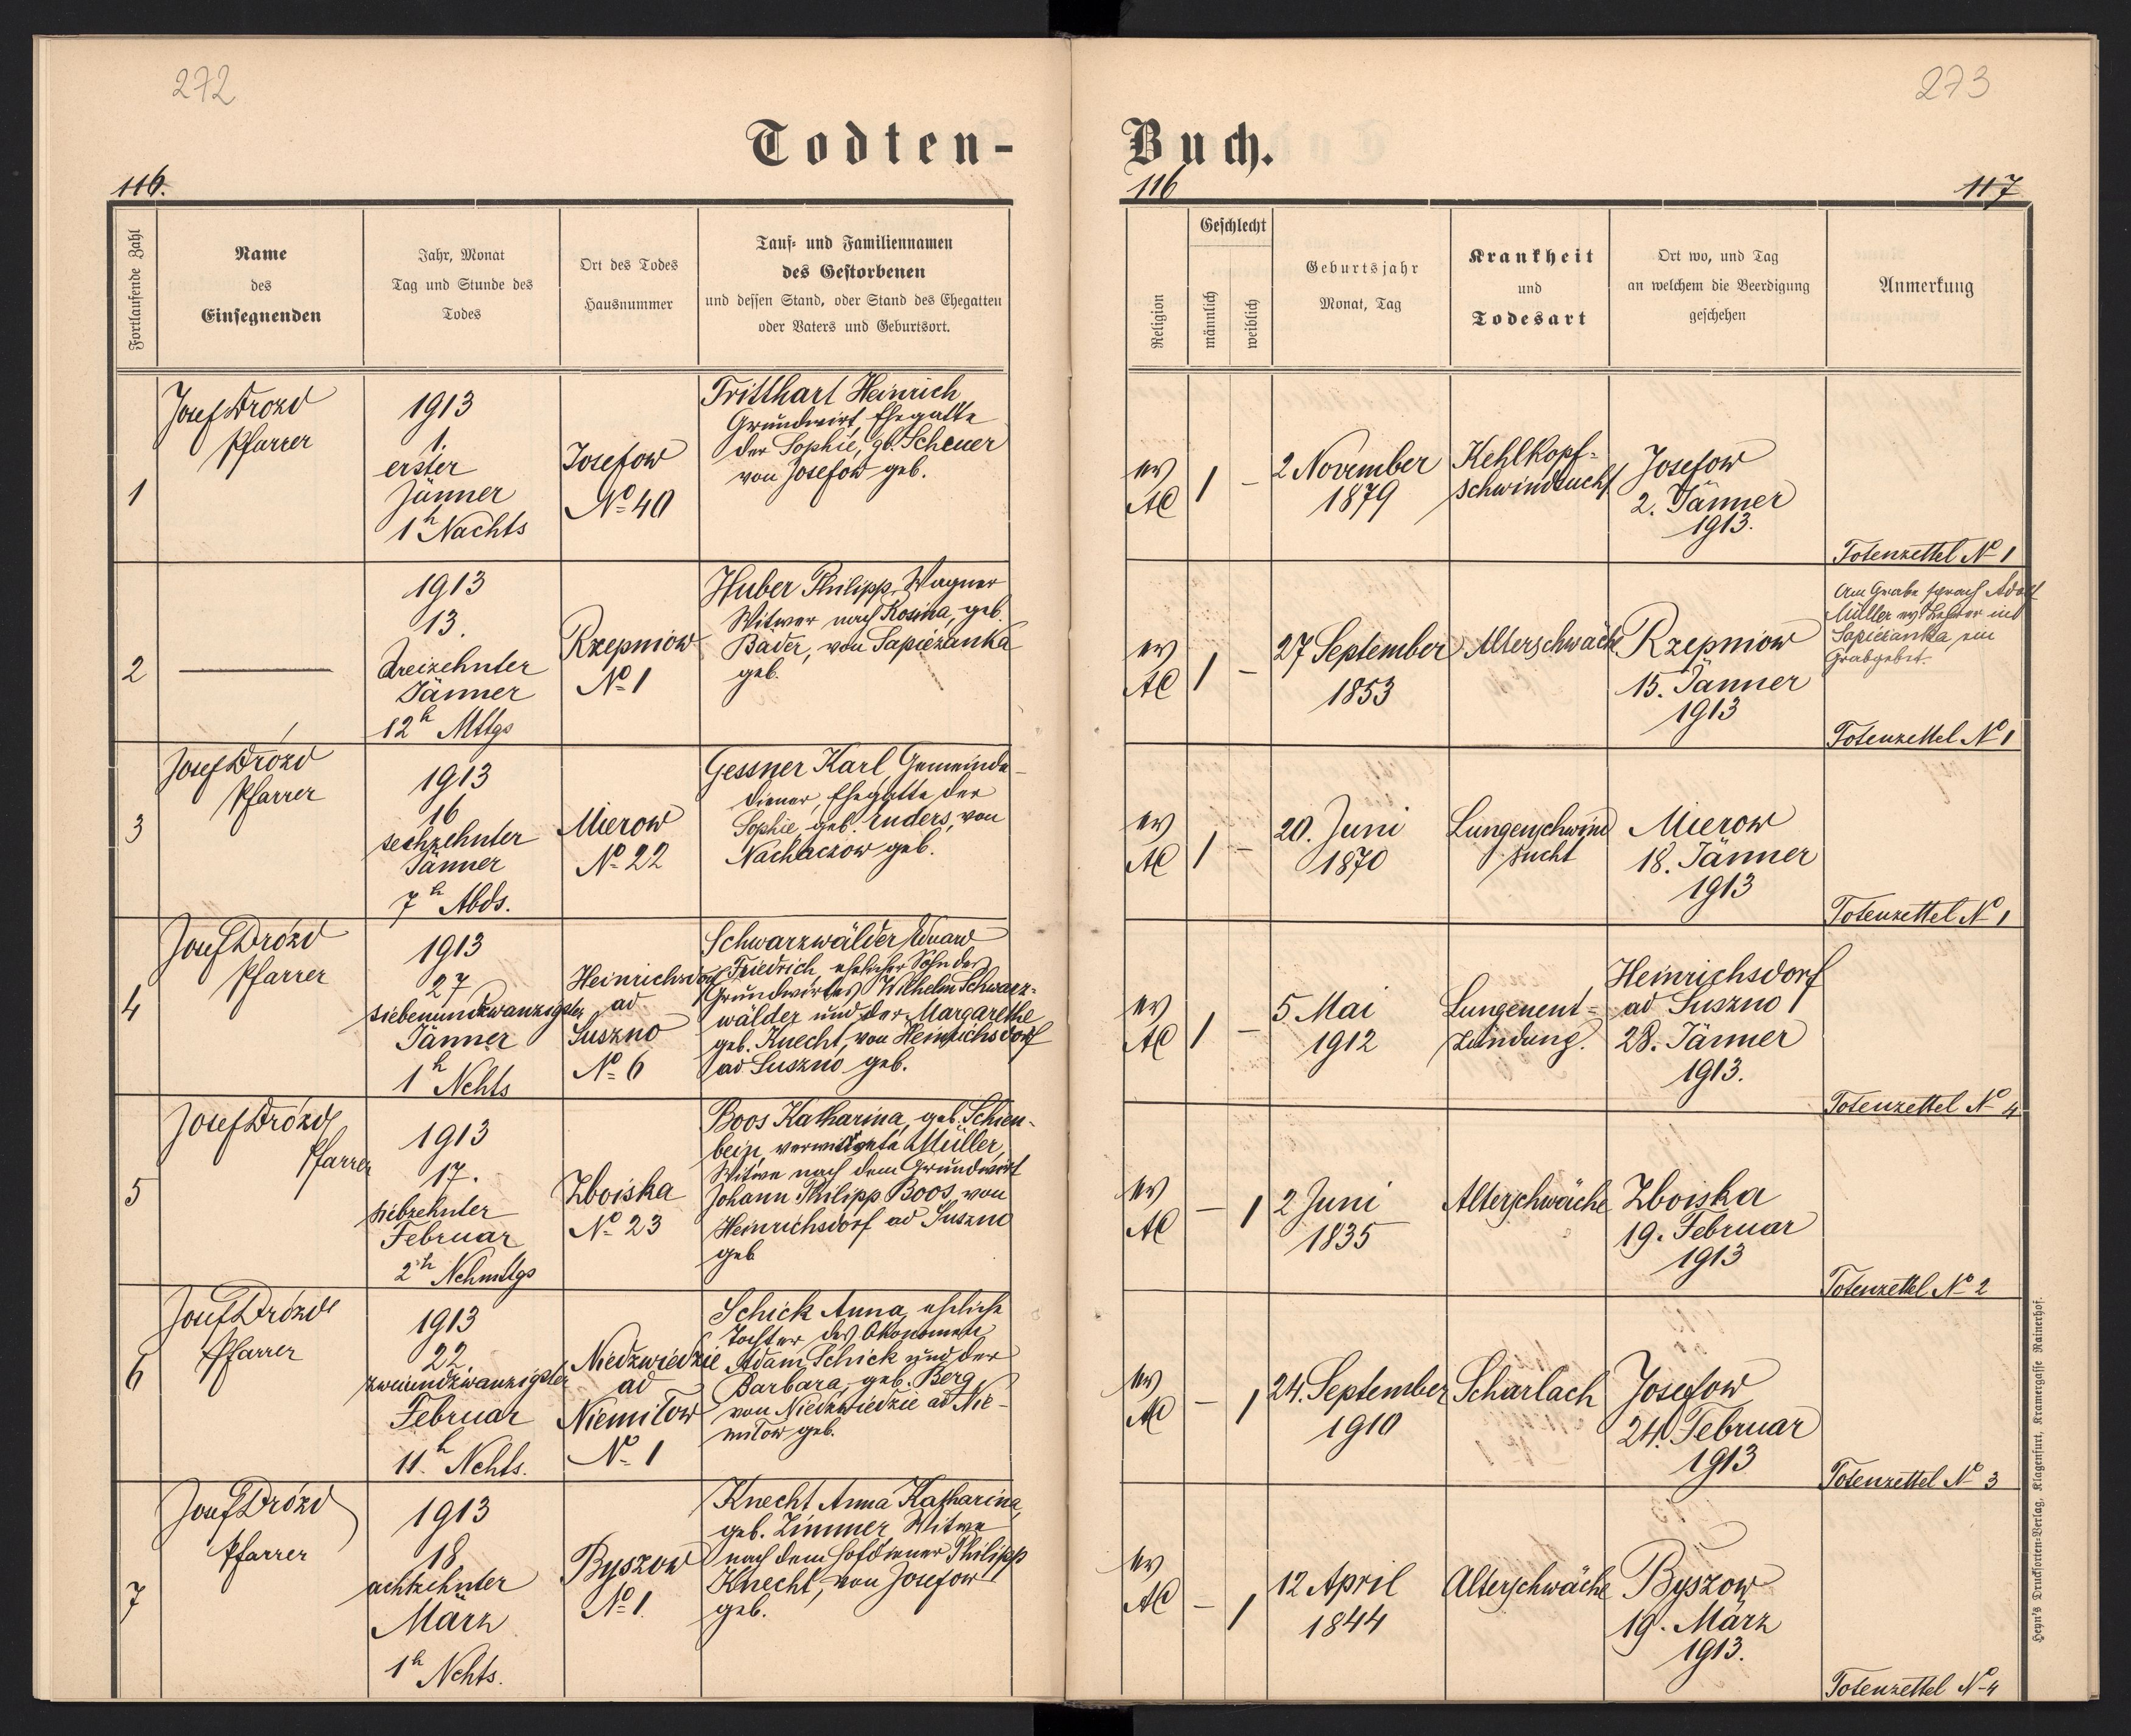 272
273
Todten-
Buch.
116.
116
117
Fortlaufende Zahl
Name
des
Einsegnenden
Jahr, Monat
Tag und Stunde des
Todes
Ort des Todes
Hausnummer
Tauf- und Familiennamen
des Gestorbenen
und dessen Stand, oder Stand des Ehegatten
oder Vaters und Geburtsort.
Religion
Geschlecht
männlich
weiblich
Geburtsjahr
Monat, Tag
Krankheit
und
Todesart
Ort wo, und Tag
an welchem die Beerdigung
geschehen
Anmerkung
1
Josef Drozd
Pfarrer
1913
1.
erster
Jänner
1h Nachts
Josefow
No 40
Tritthart Heinrich
Grundwirt, Ehegatte
der Sophie, gb. Scheuer
von Josefow geb.
ev
AC
1
-
2 November
1879
Kehlkopf-
schwindsucht
Josefow
2. Jänner
1913.
Totenzettel No 1
2
1913
13.
dreizehnter
Jänner
12h Mttgs
Rzepniow
No 1
Huber Philipp, Wagner
Witwer nach Rosina, geb.
Bäder, von Sapiezanka
geb.
ev
AC
1
-
27 September
1853
Alterschwäche
Rzepniow
15. Jänner
1913
Am Grabe sprach Adolf
Müller ev Lehrer in
Sapiezanka, ein
Grabgebet.
Totenzettel No 1
3
Josef Drózd
Pfarrer
1913
16
sechzehnter
Jänner
7h Abds.
Mierow
No 22
Gessner Karl, Gemeinde-
diener, Ehegatte der
Sophie, geb. Enders, von
Nachaczow geb.
ev
AC
1
-
20. Juni
1870
Lungenschwind
sucht
Mierow
18. Jänner
1913
Totenzettel No 1
4
Josef Drózd
Pfarrer
1913
27
siebenundzwanzigster
Jänner
1h Nchts
Heinrichsdorf
ad
Suszno
No 6
Schwarzwälder Eduard
Friedrich, ehelicher Sohn des
Grundwirtes Wilhelm Schwarz-
wälder und der Margarethe
geb. Knecht, von Heinrichsdorf
ad Suszno geb.
ev
AC
1
-
5 Mai
1912
Lungenent-
zündung.
Heinrichsdorf
ad Suszno
28. Jänner
1913.
Totenzettel No 4
5
Josef Drózd
Pfarrer
1913
17.
siebzehnter
Februar
2h Nchmttgs
Zboiska
No 23
Boos Katharina, geb. Schien-
bein, verwittwete Müller,
Witwe nach dem Grundwirt
Johann Philipp Boos, von
Heinrichsdorf ad Suszno
geb
ev
AC
-
1
2 Juni
1835
Alterschwäche
Zboiska
19. Februar
1913
Totenzettel No 2
6
Josef Drózd
Pfarrer
1913
22.
zweiundzwanzigster
Februar
11h Nchts.
Niedzwiedzie
ad
Niemilow
No 1
Schick Anna, eheliche
Tochter des Ökonomen
Adam Schick und der
Barbara, geb. Berg,
von Niedzwiedzie ad Nie-
milow geb.
ev
AC
-
1
24. September
1910
Scharlach
Josefow
24. Februar
1913
Totenzettel No 3
7
Josef Drózd
Pfarrer
1913
18.
achtzehnter
März
1h Nchts.
Byszow
No 1.
Knecht Anna Katharina,
geb. Zimmer, Witwe
nach dem Hofdiener Philipp
Knecht, von Josefow
geb.
ev
AC
-
1
12 April
1844
Alterschwäche
Byszow
19. März
1913.
Totenzettel No 4
Heyn's Drucksorten-Verlag, Klagenfurt, Kramergasse Rainerhof.